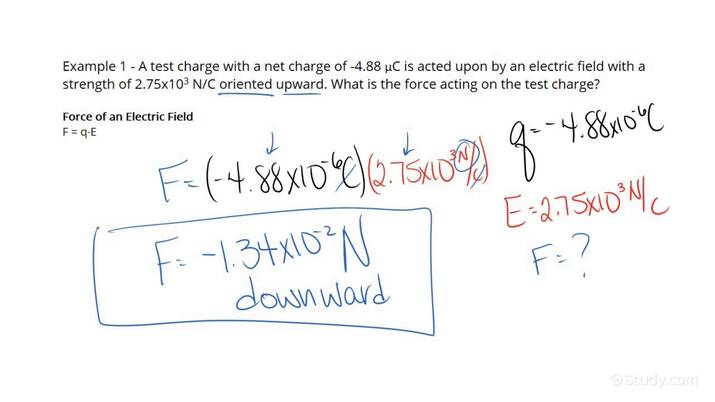 Example 1 - A test charge with a net charge of -4.88 μC is acted upon by an electric field with a
strength of 2.75x10³ N/C oriented upward. What is the force acting on the test charge?
Force of an Electric Field
F = q·E
q = -4.88x10⁻⁶C
F = (-4.88x10⁻⁶C)(2.75x10³N/C)
E = 2.75x10³N/C
F = -1.34x10⁻²N
downward
F = ?
©Study.com